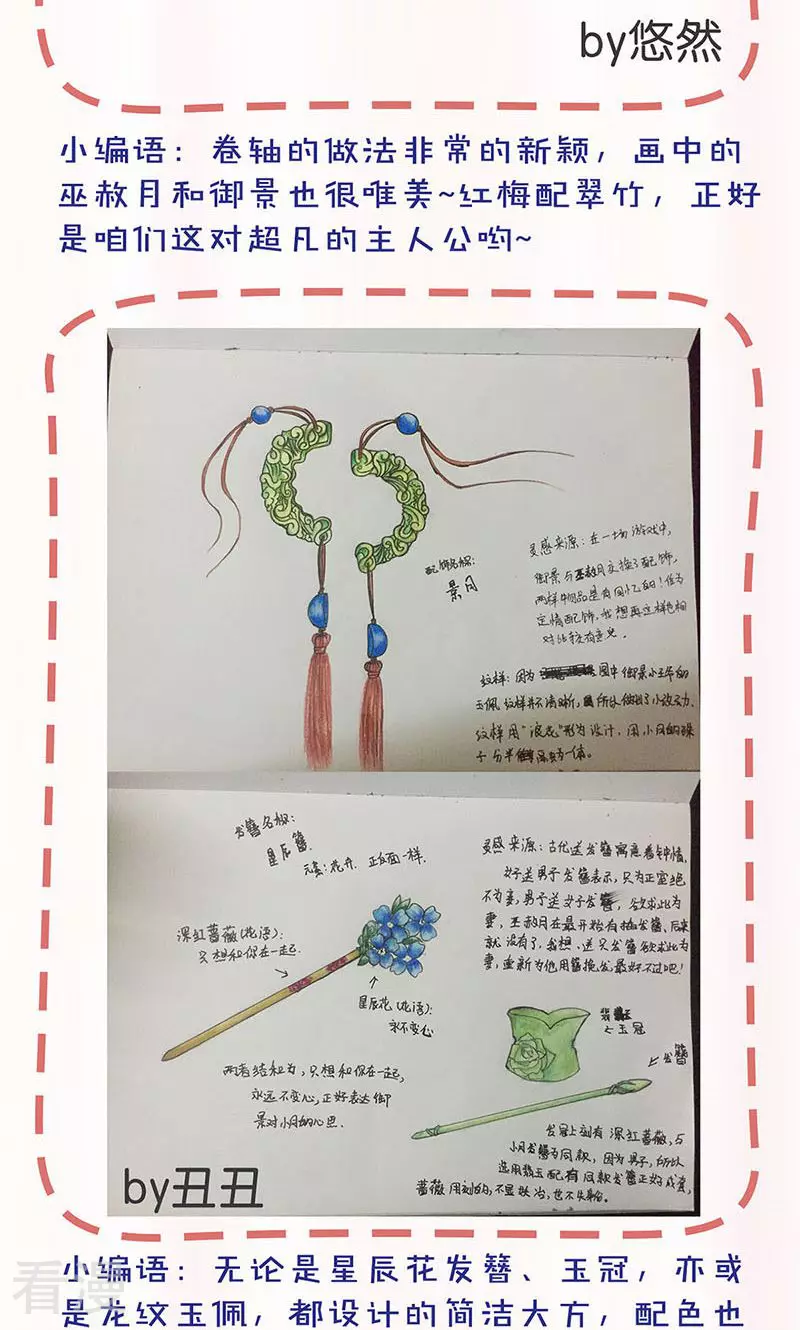 by悠然
小编语：卷轴的做法非常的新颖，画中的
巫赦月和御景也很唯美~红梅配翠竹，正好
是咱们这对超凡的主人公哟~
配饰名称：
景月
灵感来源：在一场游戏中，
御景与巫赦月交换了配饰，
两样物品是有回忆的！作为
定情配饰，我想再这样色相
对比较有意见．
纹样：因为 图中御景小王爷的
玉佩纹样并不清晰，所以做出了小改动
纹样用"浪花"形为设计，用小月的珠
子分半 为一体。
发簪名称：
星辰簪
元素：花卉．正反面一样．
深红蔷薇(花语)：
只想和你在一起
星辰花(花语)：
永不变心
两者结和为，只想和你在一起，
永远不变心，正好表达御
景对小月的心思．
灵感来源：古代送发簪寓意着钟情．
女子送男子发簪表示，只为正室绝
不为妾，男子送女子发簪，欲求此为
妻，巫赦月在最开始有插发簪、后来
就没有了，我想，送只发簪欲求此为
妻，重新为他用簪挽发最好不过吧！
翡
玉冠
发簪
发冠上刻有深红蔷薇，与
小月发簪为同款，因为男子，所以
选用翡玉配有同款发簪正好成套，
蔷薇用刻的，不显妖冶，也不失
by丑丑
小编语：无论是星辰花发簪、玉冠，亦或
是龙纹玉佩，都设计的简洁大方，配色也
看漫